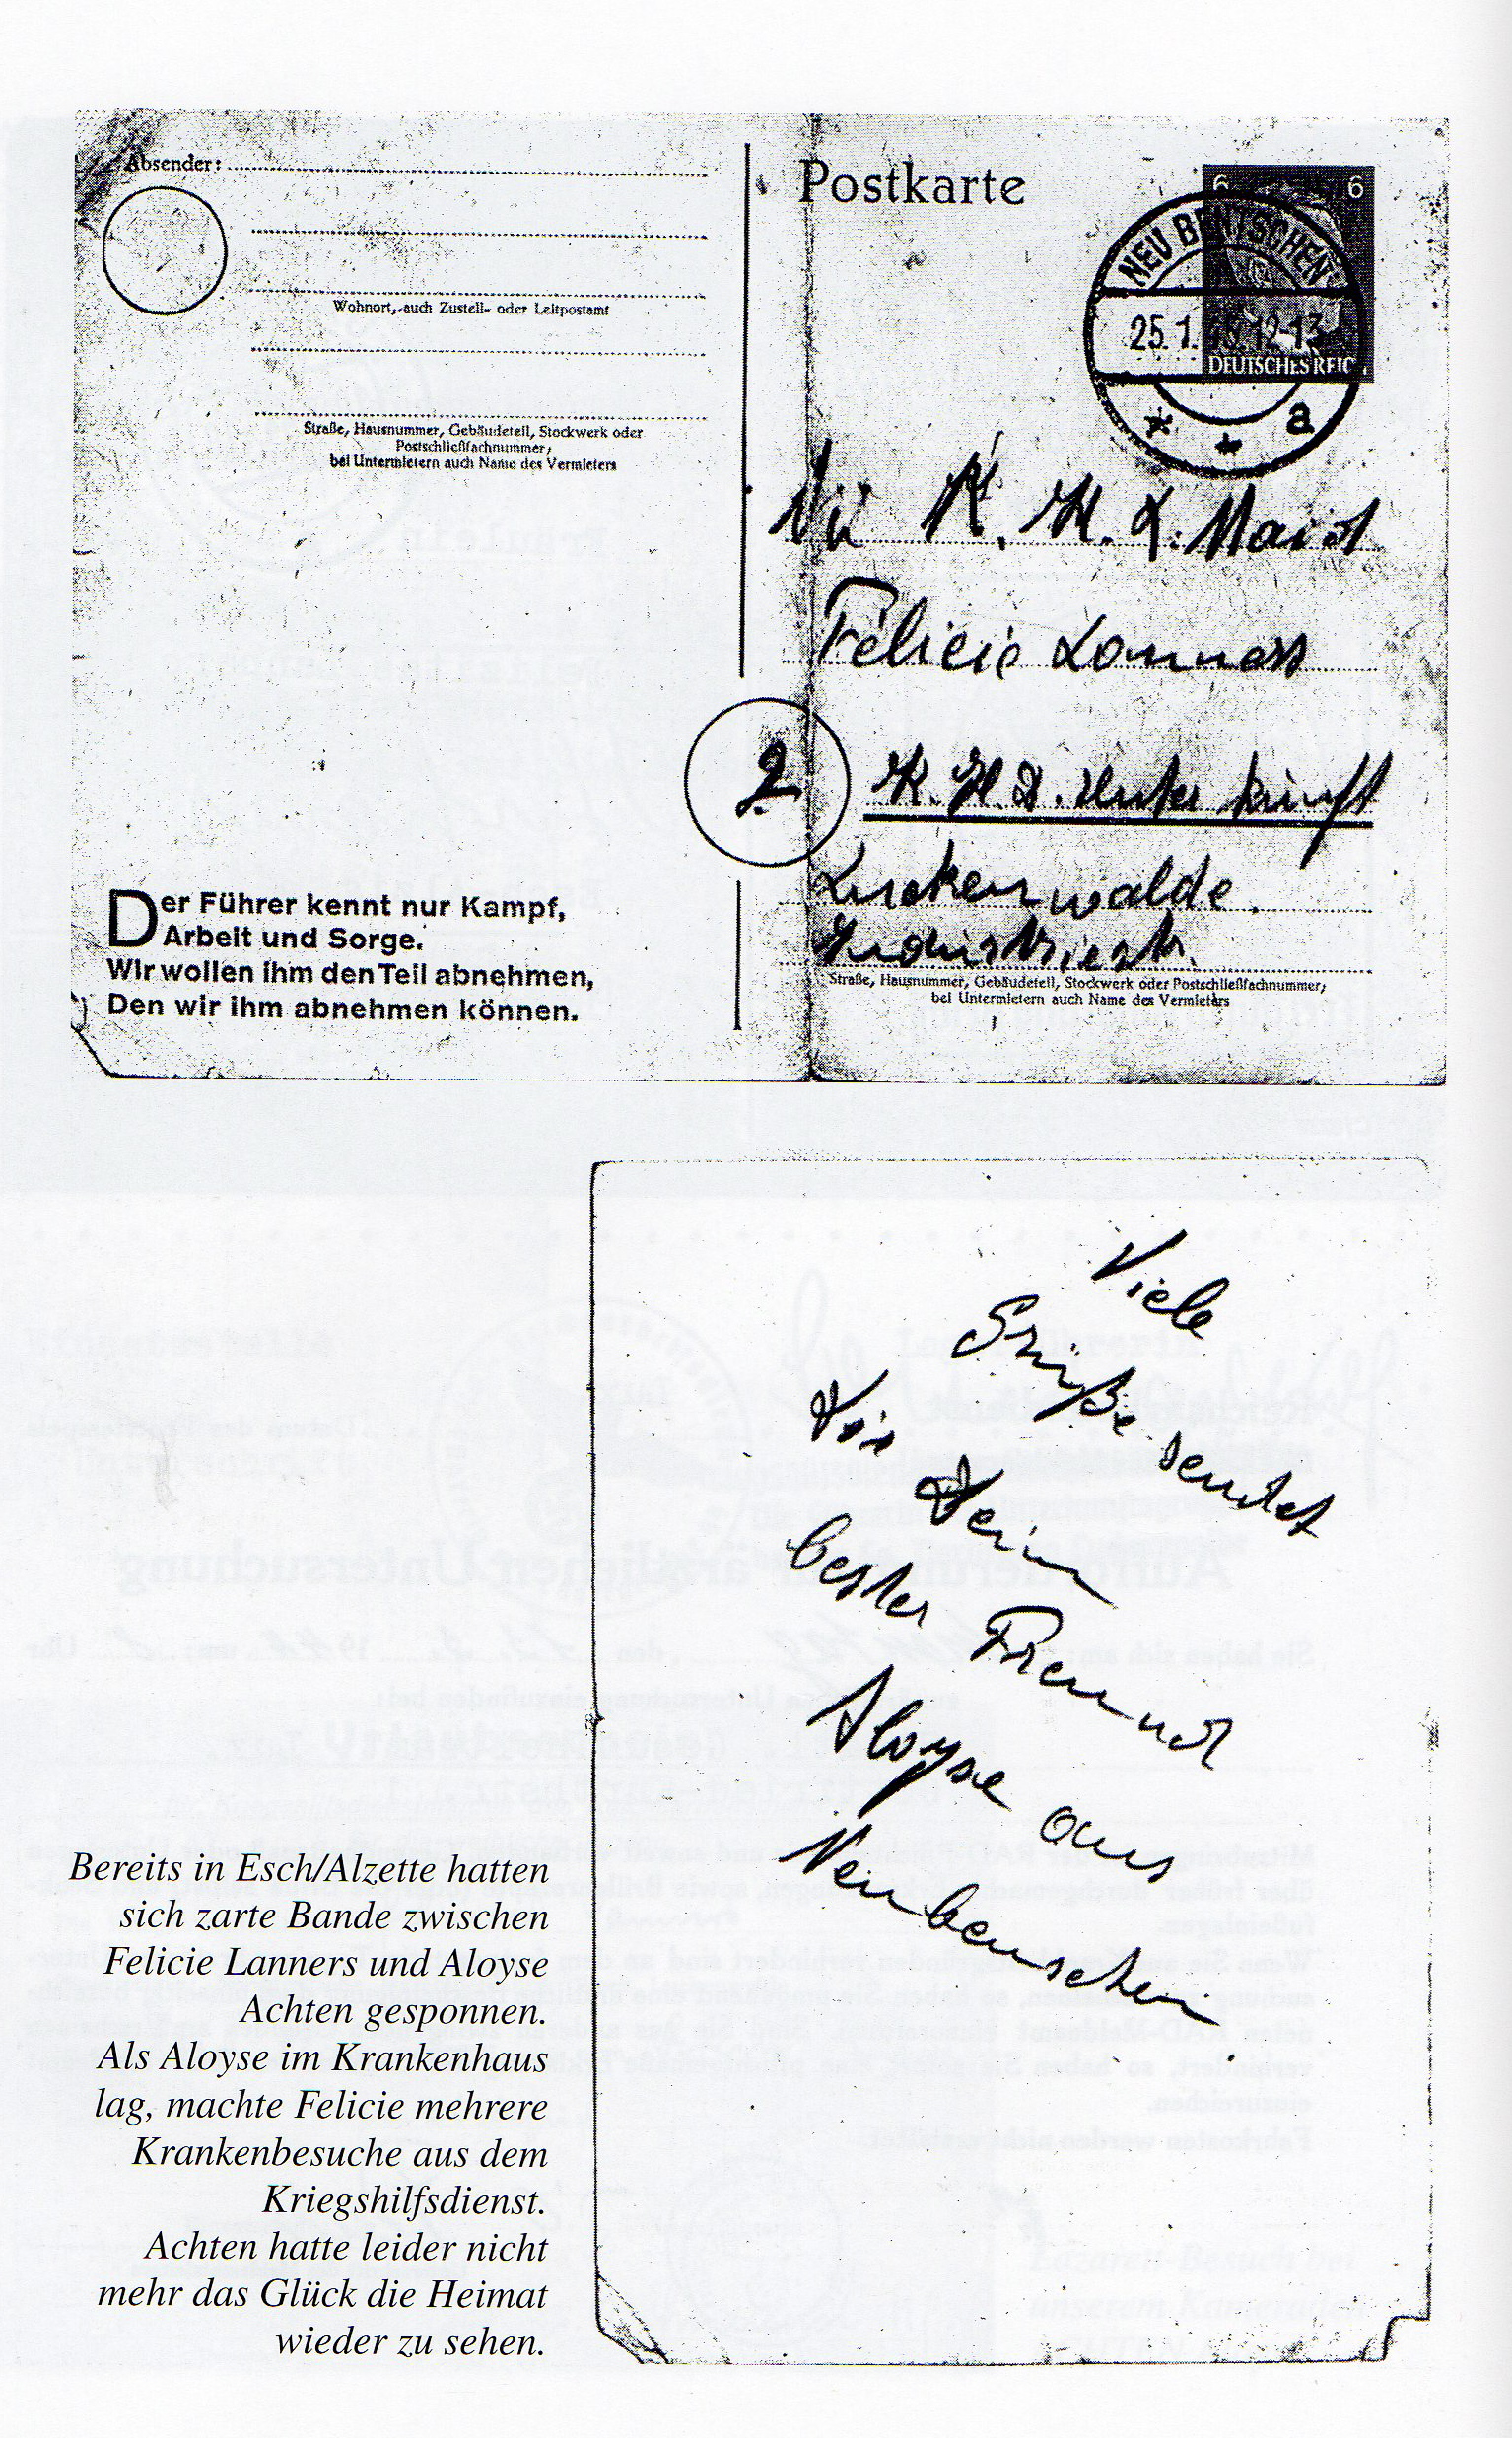 Absender:
Wohnort, auch Zustell- oder Leitpostamt
Straße, Hausnummer, Gebäudeteil, Stockwerk oder
Postschließfachnummer,
bei Untermietern auch Name des Vermieters
Der Führer kennt nur Kampf,
Arbeit und Sorge.
Wir wollen ihm den Teil abnehmen,
Den wir ihm abnehmen können.
Postkarte
6 6
NEU BENTSCHEN
25.1. 12-13
DEUTSCHES REIC
a
K. H. D. Maid
Felicie Lanners
2
K. H. D. Unterkunft
Luckenwalde.
Industriestr.
Straße, Hausnummer, Gebäudeteil, Stockwerk oder Postschließfachnummer,
bei Untermietern auch Name des Vermieters
Viele
Grüße sendet
Dir Dein
bester Freund
Aloyse aus
Neubenschen
Bereits in Esch/Alzette hatten
sich zarte Bande zwischen
Felicie Lanners und Aloyse
Achten gesponnen.
Als Aloyse im Krankenhaus
lag, machte Felicie mehrere
Krankenbesuche aus dem
Kriegshilfsdienst.
Achten hatte leider nicht
mehr das Glück die Heimat
wieder zu sehen.